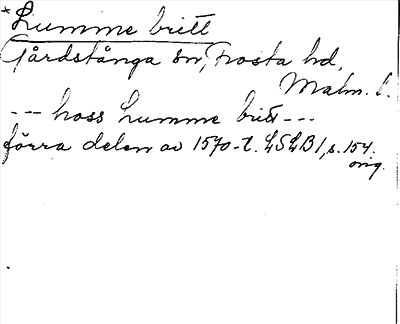 *Lumme britt
Gårdstånga sn, Frosta hd,
Malm. l.
--- hoss Lumme britt ---
förra delen av 1570-t. LSLB 1, s. 154.
orig.